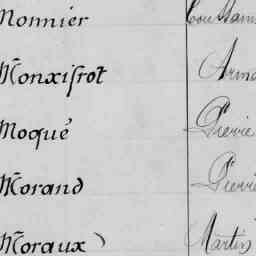 Monnier
Monxifrot Arma
Moqué Pierre
Morand Pierre
Moraux Martin